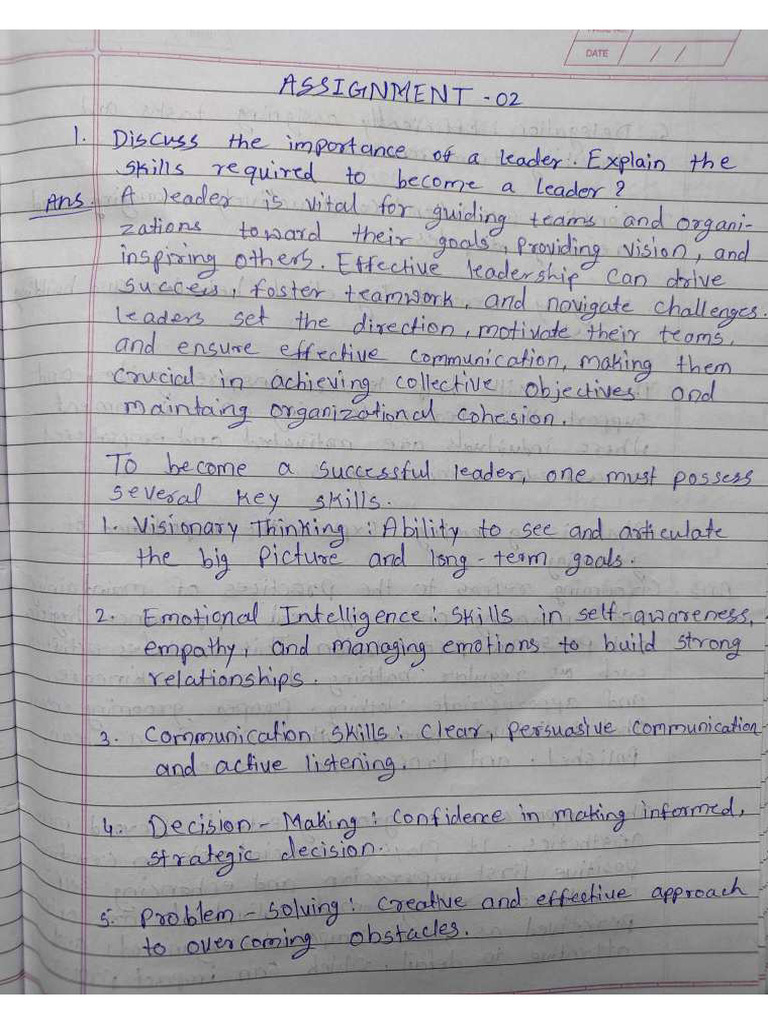 DATE / /
ASSIGNMENT - 02
1. Discuss the importance of a leader. Explain the
skills required to become a leader?
Ans. A leader is vital for guiding teams and organi-
zations toward their goals, providing vision, and
inspiring others. Effective leadership can drive
success, foster teamwork, and navigate challenges.
leaders set the direction, motivate their teams,
and ensure effective communication, making them
crucial in achieving collective objectives and
maintaing organizational cohesion.
To become a successful leader, one must possess
several key skills.
1. Visionary Thinking : Ability to see and articulate
the big picture and long-term goals.
2. Emotional Intelligence : Skills in self-awareness,
empathy, and managing emotions to build strong
relationships.
3. Communication Skills : Clear, persuasive communication
and active listening.
4. Decision - Making : Confidence in making informed,
strategic decision.
5. Problem - solving : Creative and effective approach
to overcoming obstacles.